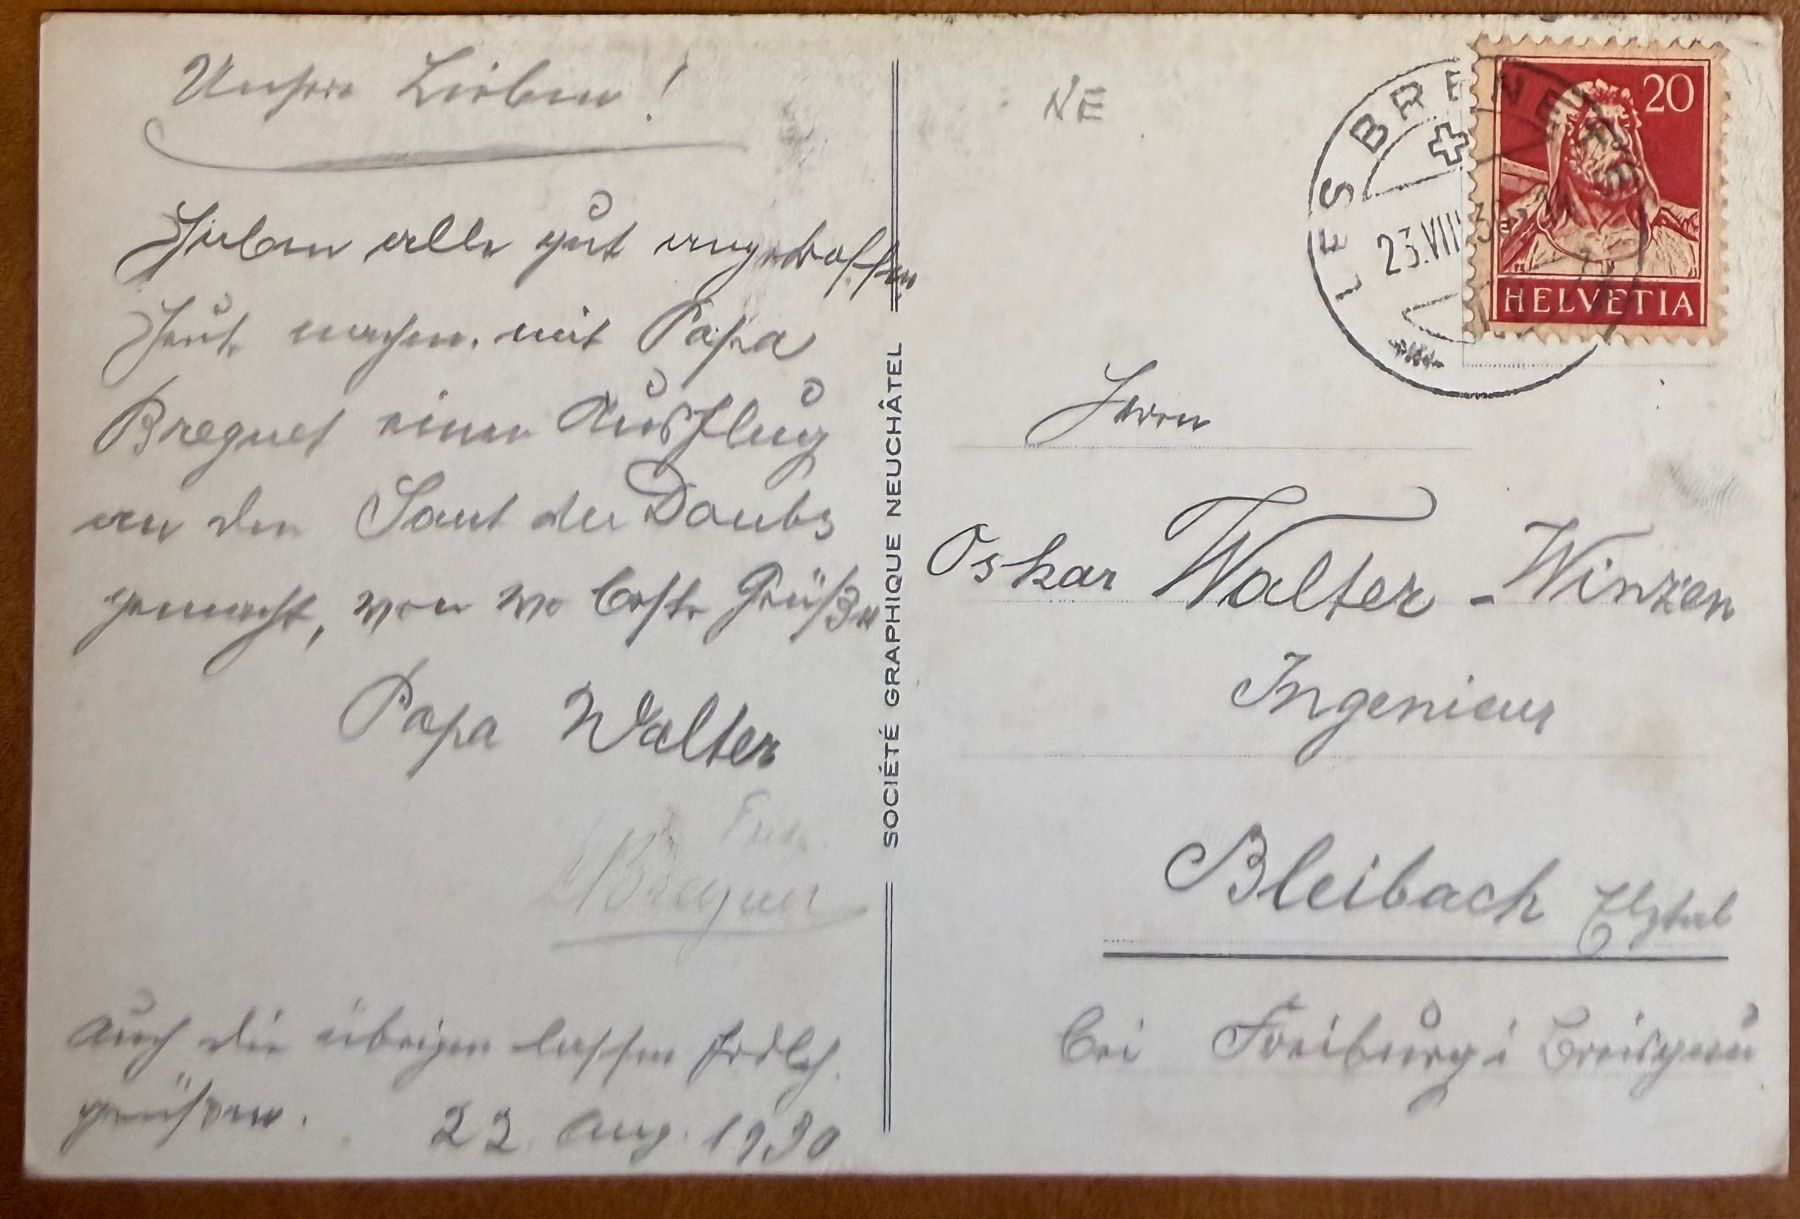 Unsere Lieben!
Haben alle gut angetroffen
Heute machen mit Papa
Breguet einen Ausflug
an den Saut du Doubs
gemacht, von wo beste Grüße
Papa Walter
Breguet
Auch die übrigen lassen frdlch.
grüßen.
22. Aug. 1930
SOCIÉTÉ GRAPHIQUE NEUCHÂTEL
NE
LES BRENETS
23.VIII.30
20
HELVETIA
Herrn
Oskar Walter-Winzen
Ingenieur
Bleibach Elztal
bei Freiburg i Breisgau